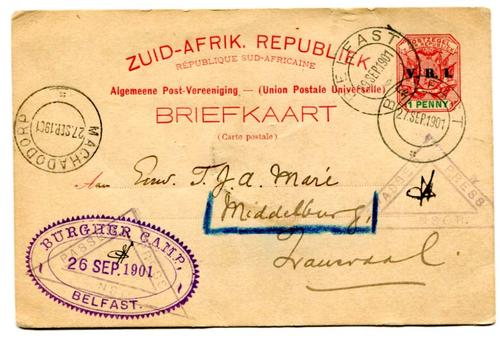 ZUID-AFRIK. REPUBLIEK
RÉPUBLIQUE SUD-AFRICAINE
Algemeene Post-Vereeniging — (Union Postale Universelle)
BRIEFKAART
(Carte postale)
V.R.I.
1 PENNY
BELFAST
SEP.1901
BELFAST
27.SEP.1901
MACHADODORP
27.SEP.1901
Aan
T. J. A. Maré
Middelburg,
Transvaal.
PASSED PRESS
BURGHER CAMP,
PASSED PRESS
26 SEP. 1901
BELFAST.